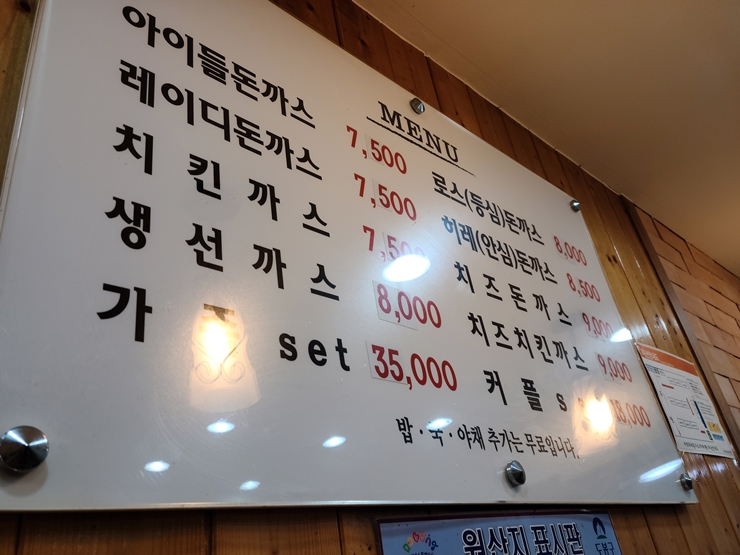 MENU
아이들돈까스 7,500
레이디돈까스 7,500
치킨까스 7,500
생선까스 8,000
가 set 35,000
로스(등심)돈까스 8,000
히레(안심)돈까스 8,500
치즈돈까스 9,000
치즈치킨까스 9,000
커플s
밥·국·야채 추가는 무료입니다.
원산지 표시판
도봉구